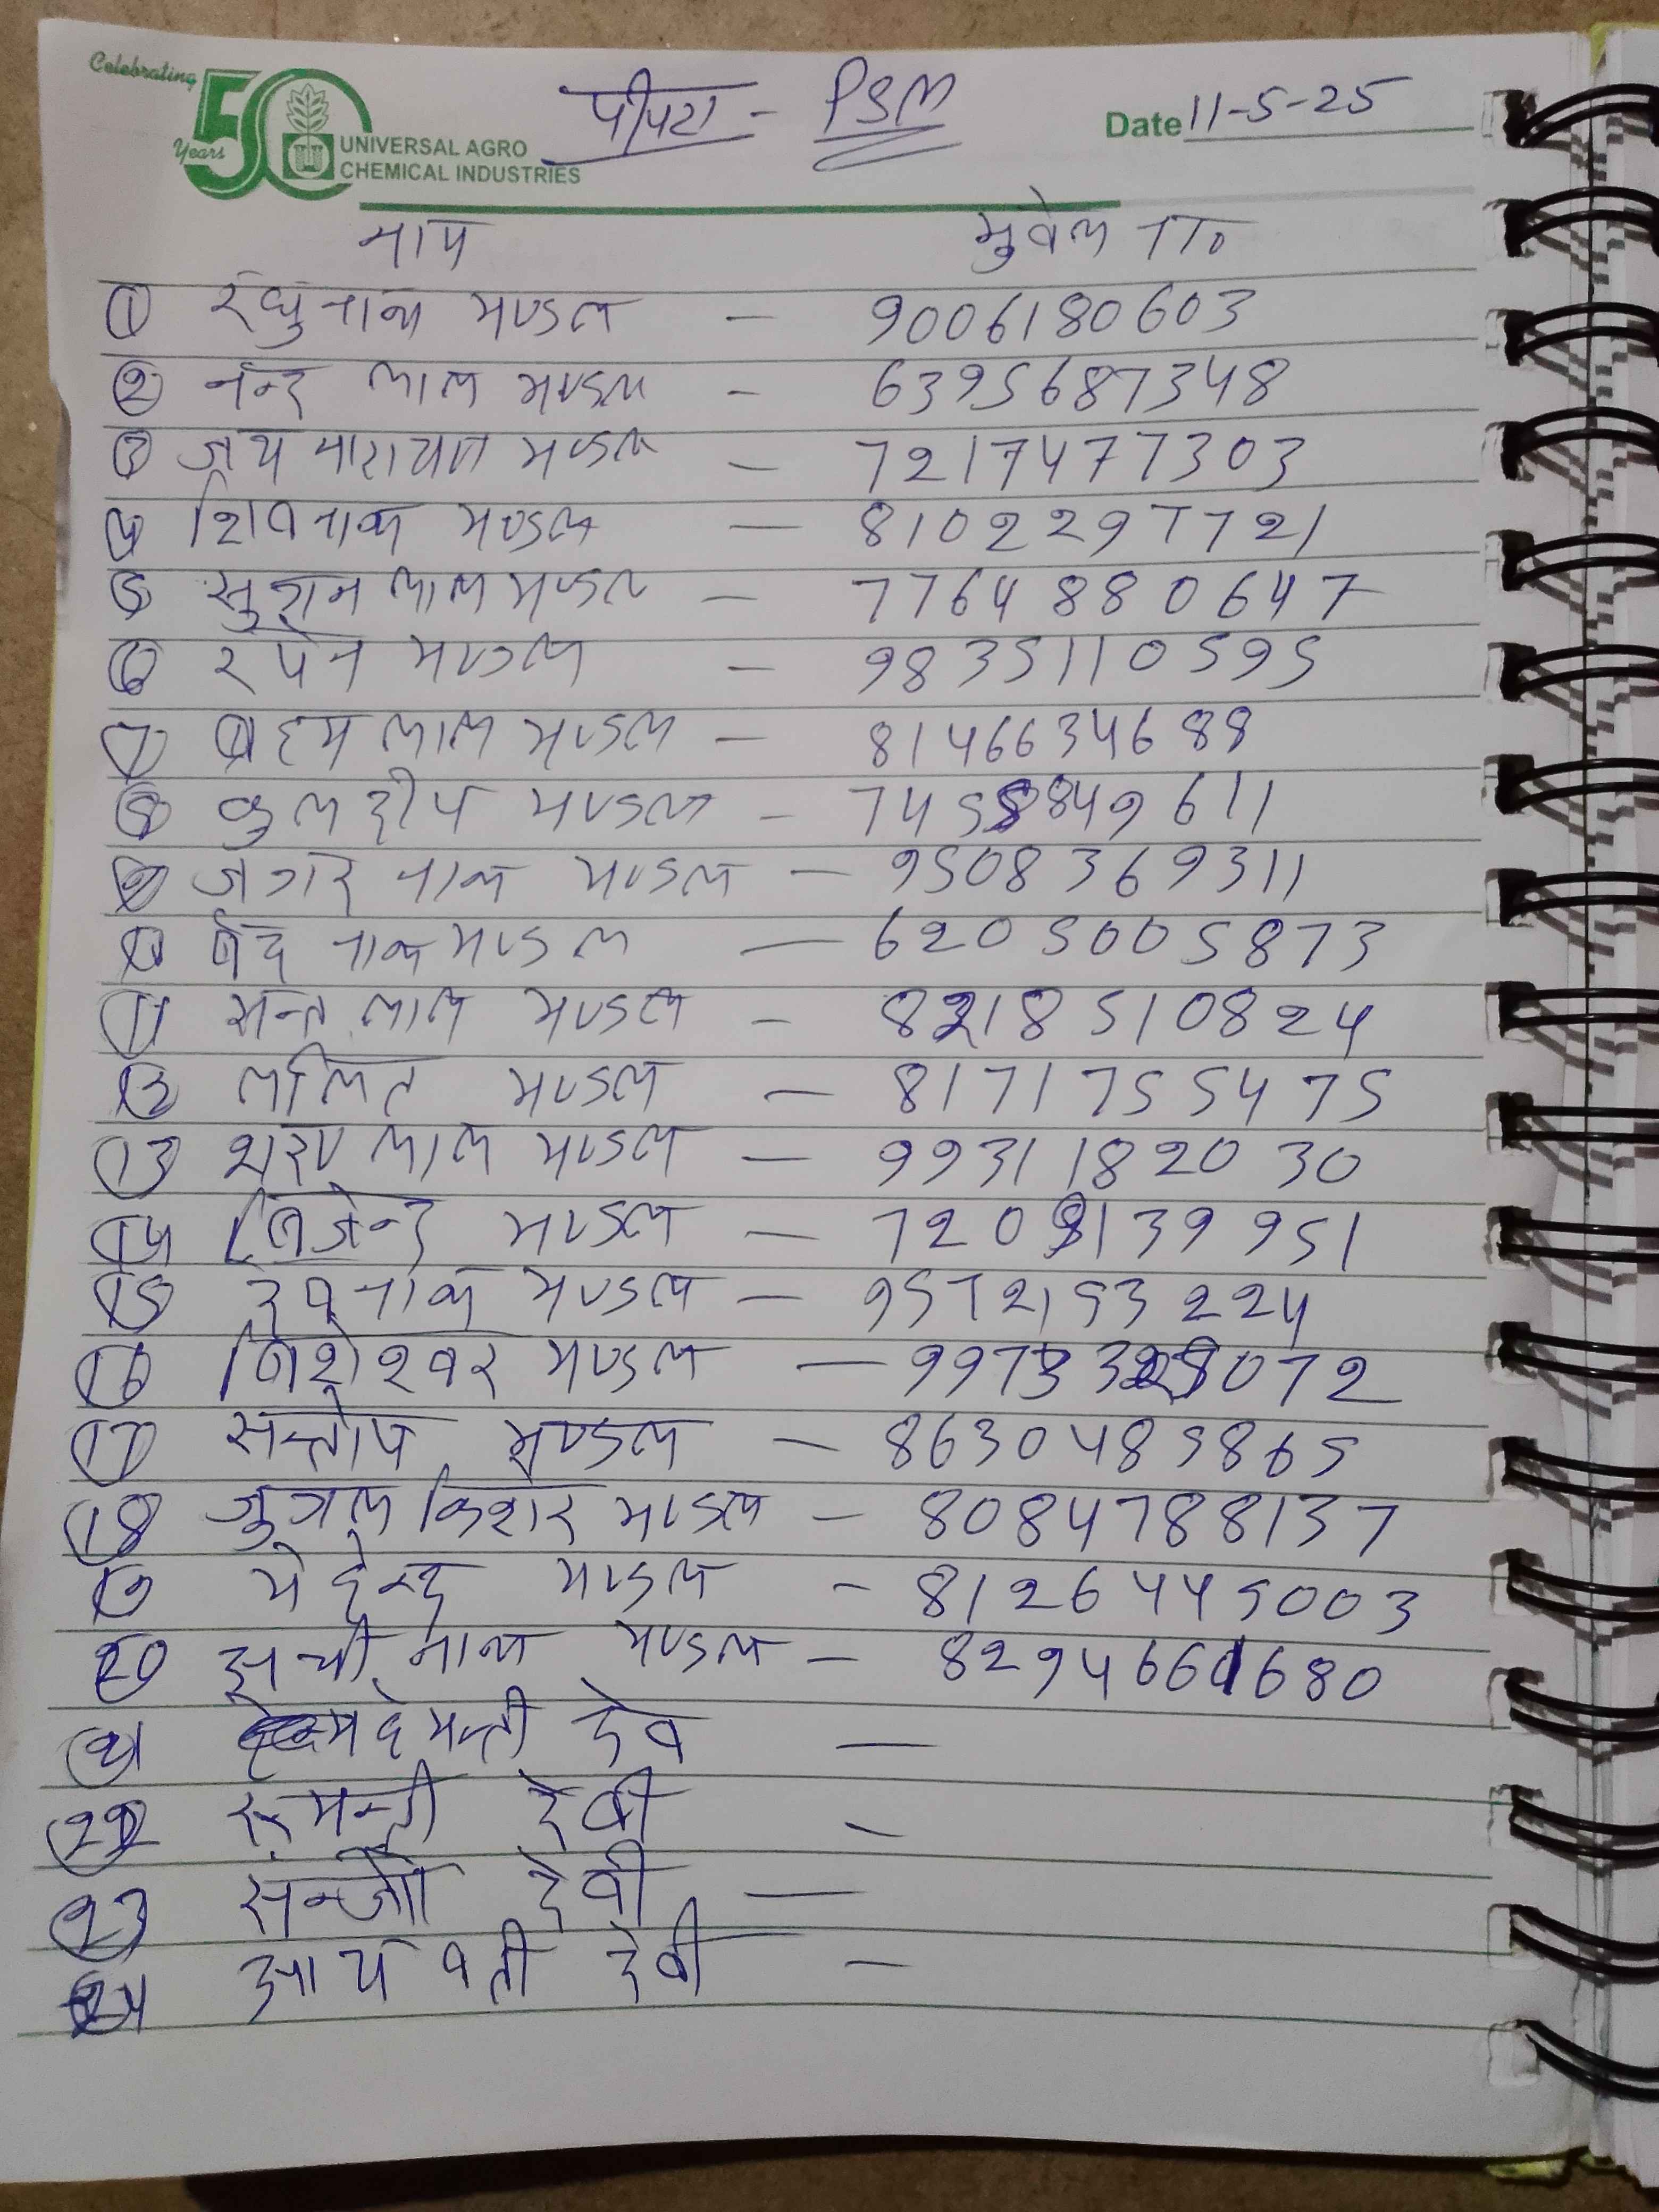 Celebrating
50 Years
UNIVERSAL AGRO
CHEMICAL INDUSTRIES
पीपरा - PSM
Date 11-5-25
नाम मुवेल
① रघुनाथ मण्डल - 9006180603
② नन्द लाल मण्डल - 6395687348
③ जय नारायण मण्डल - 7217477303
④ शिवनाथ मण्डल - 8102297721
⑤ सुगन लाल मण्डल - 7764880647
⑥ रपेन मण्डल - 9835110595
⑦ ब्रहम लाल मण्डल - 8146634688
⑧ कुलदीप मण्डल - 7458849611
⑨ जगर नाथ मण्डल - 9508369311
⑩ नाथ मण्डल - 6205005873
⑪ सन्त लाल मण्डल - 8218510824
⑫ ललित मण्डल - 8171755475
⑬ लाल मण्डल - 9931182030
⑭ विजेन्द्र मण्डल - 7209139951
⑮ देवनाथ मण्डल - 9572153224
⑯ मण्डल -
⑰ सन्तोष मण्डल - 8630485865
⑱ जुगल किशोर मण्डल - 8084788137
⑲ मण्डल - 8126445003
20 मण्डल - 8294661680
21 देव -
22 देवी -
23 देवी -
24 देवी -